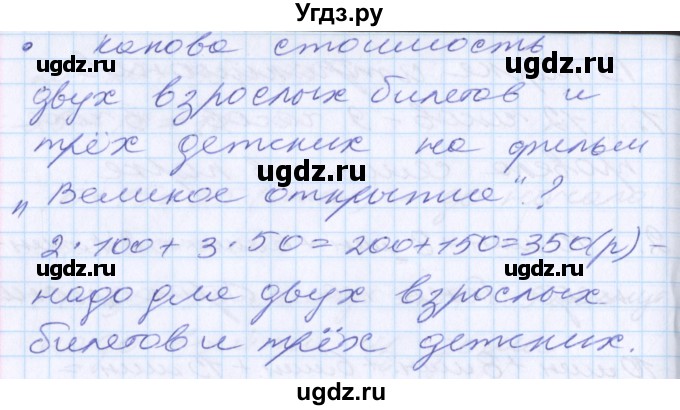 Угдз.ру
• какова стоимость
двух взрослых билетов и
трёх детских на фильм
„Великое открытие"?
2·100+3·50=200+150=350(р)-
надо для двух взрослых
билетов и трёх детских.
ugdz.ru ugdz.ru
ugdz.ru
ugdz.ru ugdz.ru
ugdz.ru
ugdz.ru ugdz.ru
ugdz.ru